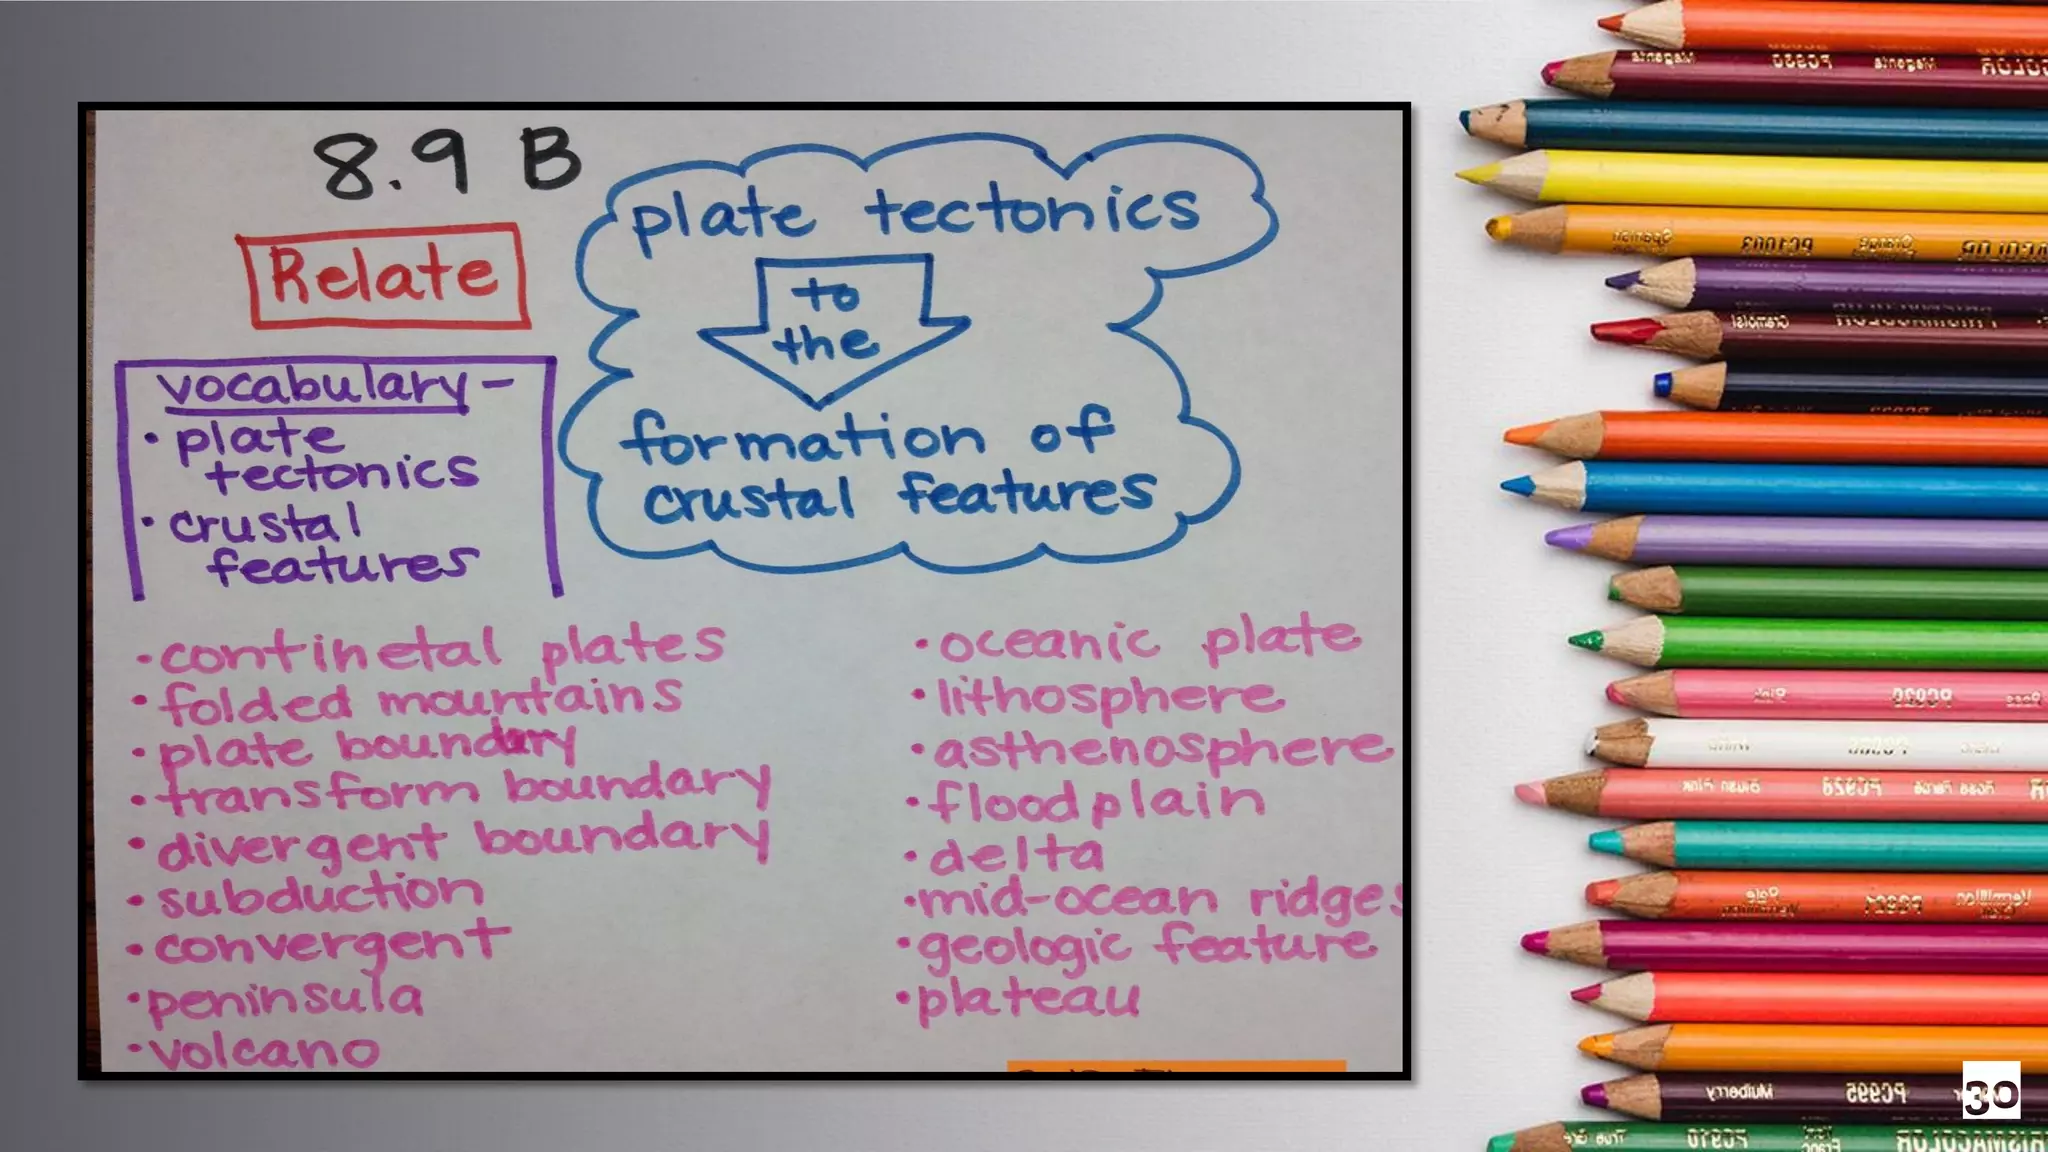 8.9 B
Relate
plate tectonics
to
the
formation of
crustal features
vocabulary-
• plate
tectonics
• crustal
features
• continetal plates
• folded mountains
• plate boundary
• transform boundary
• divergent boundary
• subduction
• convergent
• peninsula
• volcano
• oceanic plate
• lithosphere
• asthenosphere
• floodplain
• delta
• mid-ocean ridges
• geologic feature
• plateau
30